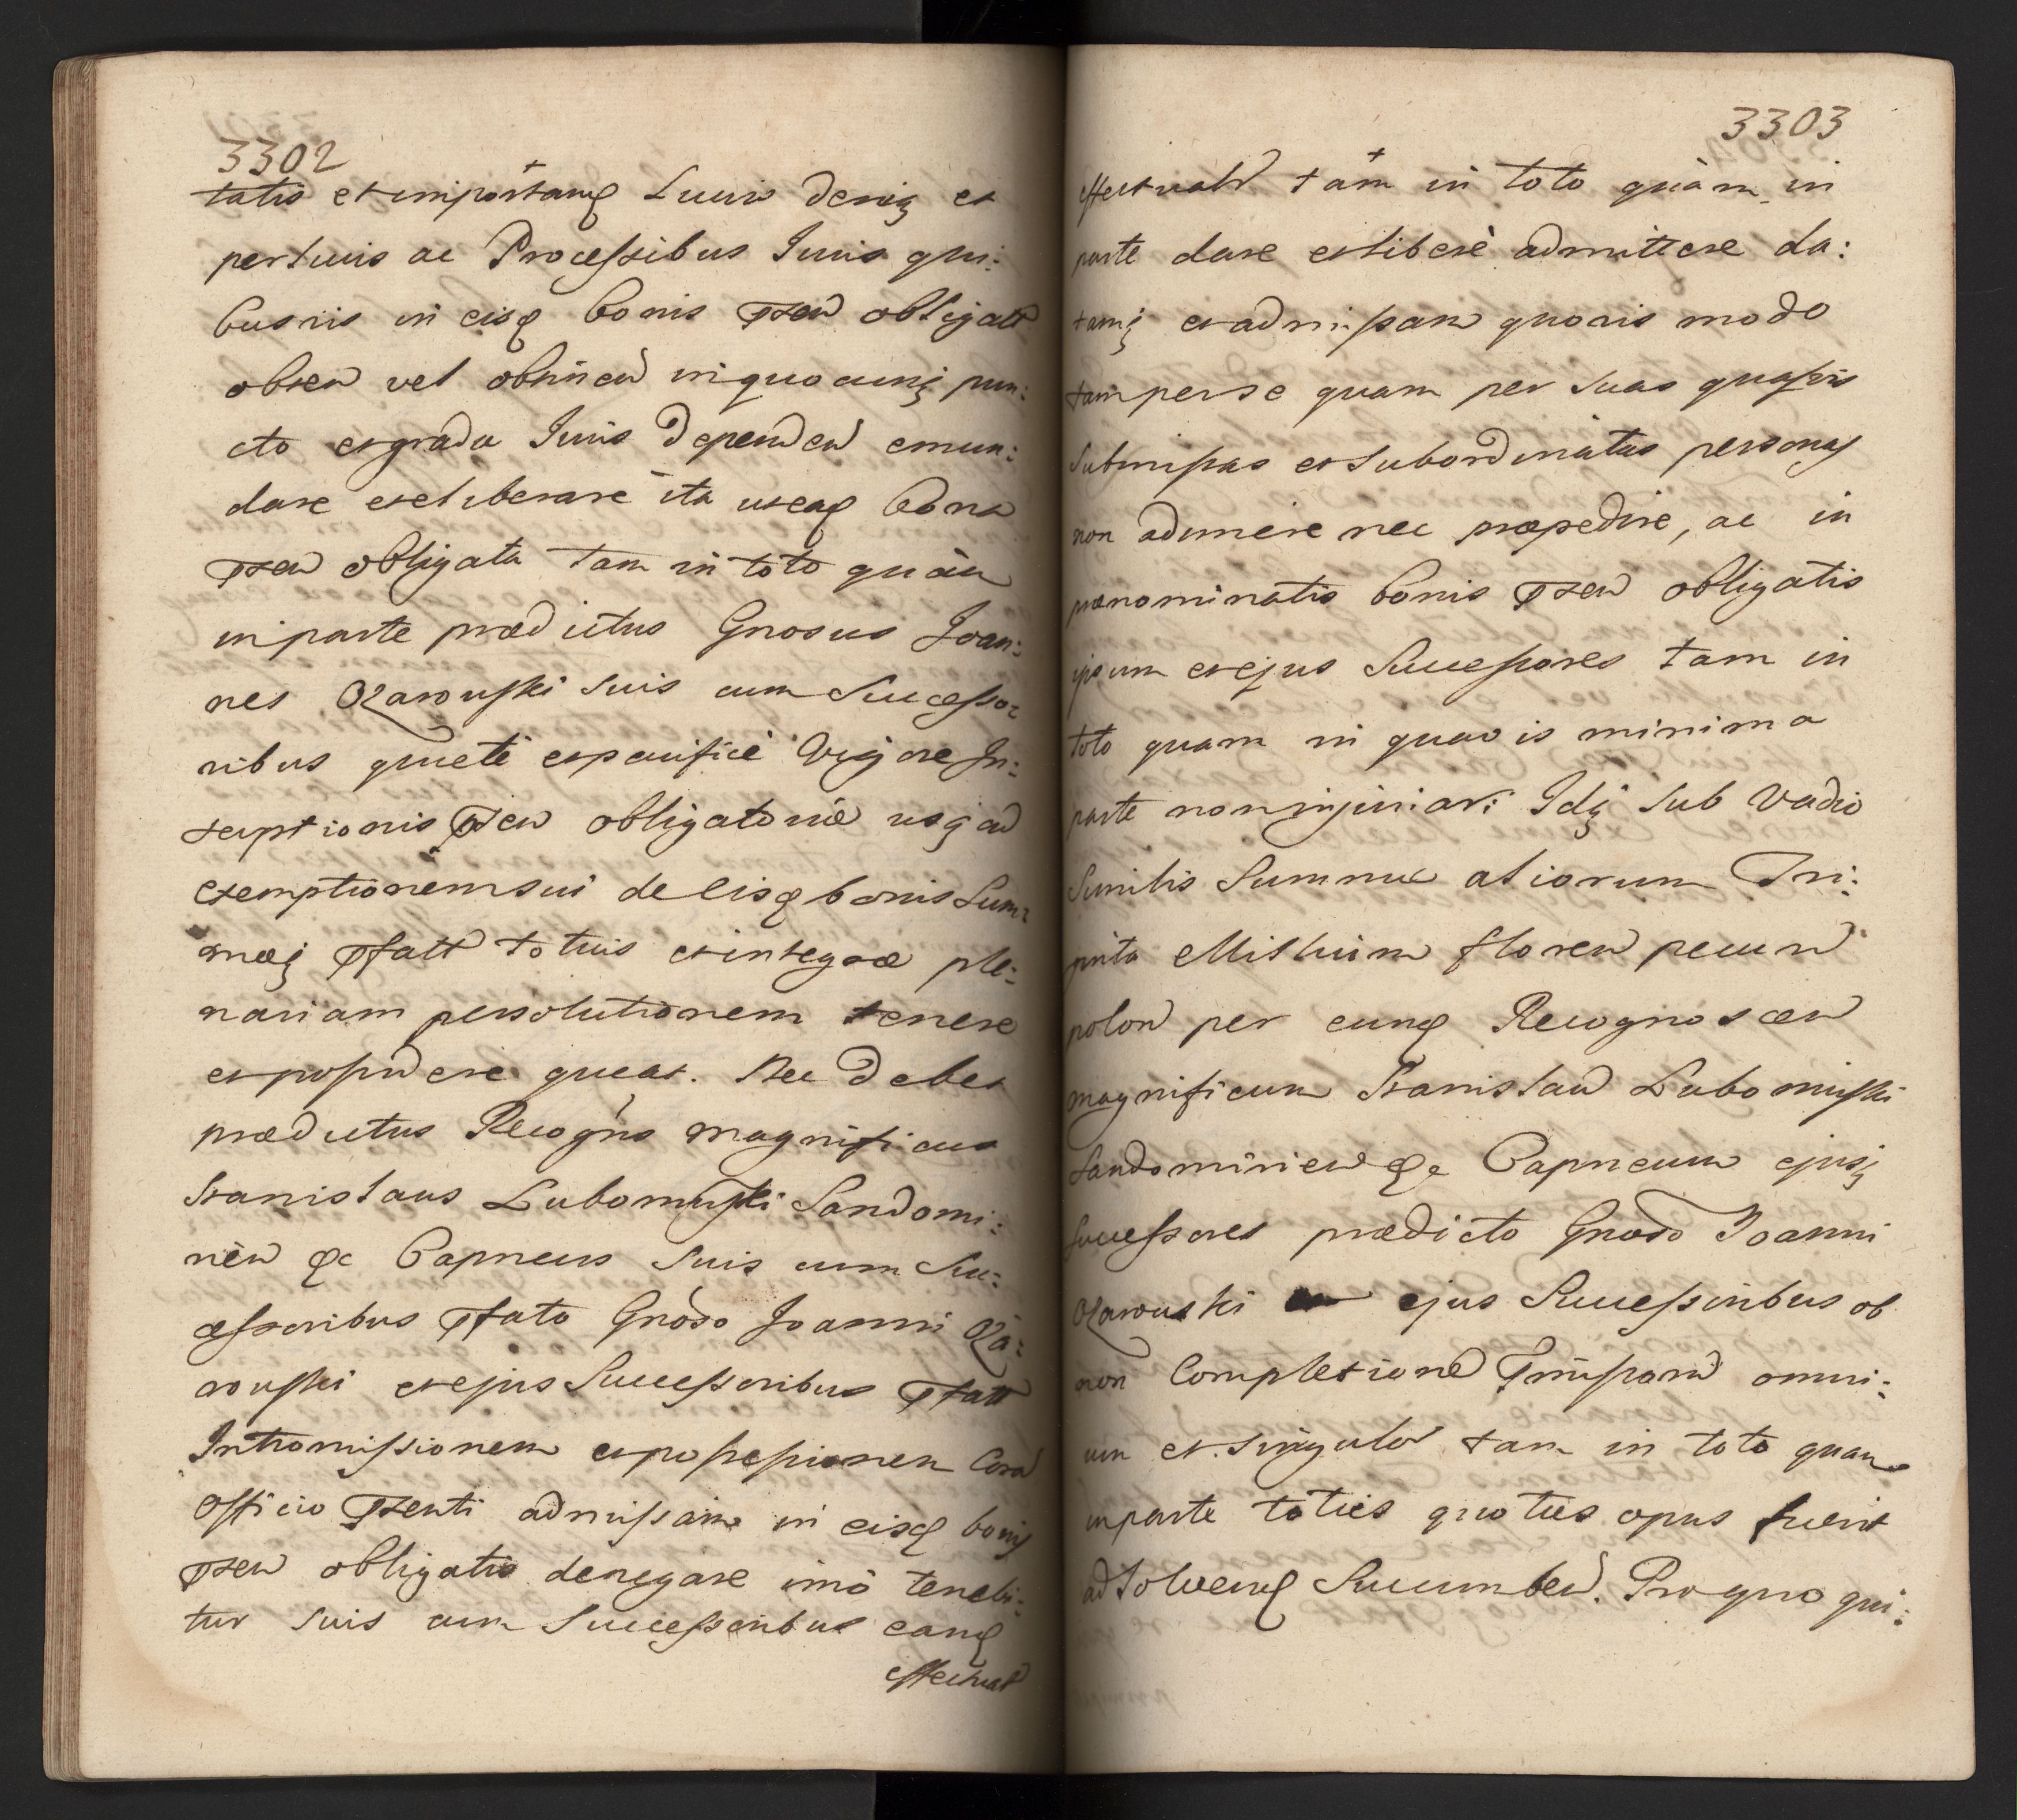 3302
tatis et importanq Lucris deniq et
pertuiis ac Processibus Iuris qui:
busvis in eisq bonis pren obligatt
obten vel obtinen in quocunq pun:
cto et gradu Iuris dependen emun:
dare et eliberare ita ut eaq bona
pren obligata tam in toto quàm
in parte prædictus Gnosus Joan:
nes Ożarowski suis cum Successo:
ribus quietè et pacificè vigore In:
scriptionis pren obligatoriæ usq ad
exemptionem sui de eisq bonis Sum:
mæq pfatt totius et integræ ple:
nariam persolutionem tenere
et possidere queat. Nec debet
prædictus Recogns magnificus
Stanislaus Lubomirski Sandomi:
rien &c Capneus suis cum Suc:
cessoribus pfato Gnoso Joanni Oża:
rowski et ejus Successoribus pfatt
Intromissionem et possessionem Cora
officio pnti admissam in eisq bonis
pren obligatis denegare imò tenebi:
tur suis cum Successoribus eanq
effectual
3303
effectualr tam in toto quàm in
parte dare et liberè admittere da:
tamq et admissam quovis modo
tam per se quam per suas quasvis
submissas et subordinatas personas
non adimere nec præpedire, ac in
prænominatis bonis pren obligatis
ipsum et ejus Successores tam in
toto quam in quavis minima
parte non injuriari Idq sub vadio
similis Summæ aliorum Tri:
ginta Millium floren pecun
polon per eunq Recognoscen
magnificum Stanislaum Lubomirski
Sandomirien &c Capneum ejusq
Successores prædicto Gnoso Joanni
Ożarowski ejus Successoribus ob
non Completione Pmissorum omni:
um et singulor tam in toto quam
in parte toties quoties opus fuerit
ad solvenq Succumben. Pro quo qui: